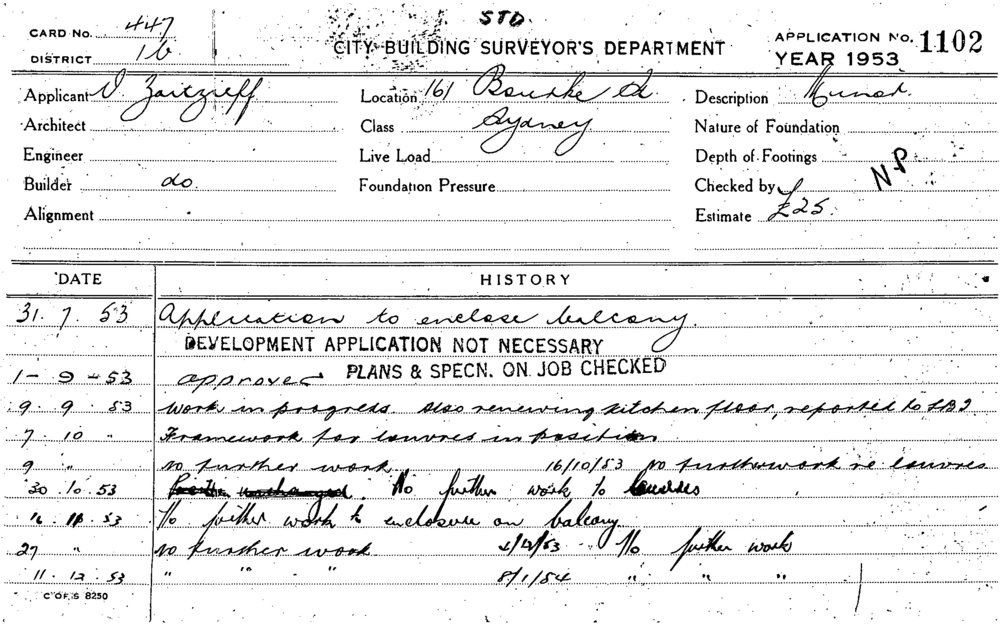 STD.
CARD No. 447
DISTRICT 16
CITY BUILDING SURVEYOR'S DEPARTMENT
APPLICATION No. 1102
YEAR 1953
Applicant V Zaitzieff Location 161 Bourke St Description Minor
Architect Class Sydney Nature of Foundation
Engineer Live Load Depth of Footings
Builder do. Foundation Pressure Checked by NP
Alignment Estimate £25.
DATE HISTORY
31. 7. 53 Application to enclose balcony.
DEVELOPMENT APPLICATION NOT NECESSARY
1 - 9 - 53 approved PLANS & SPECN. ON JOB CHECKED
9. 9. 53 Work in progress. Also renewing kitchen floor, reported to
7. 10 " Framework for louvres in position
9 " no further work. 16/10/53 no further work re louvres
30. 10. 53 No further work to louvres
No further work to enclosure on balcony.
27 " no further work No further work
11. 12. 53 " " " 8/1/54 " " "
C OF S 8250